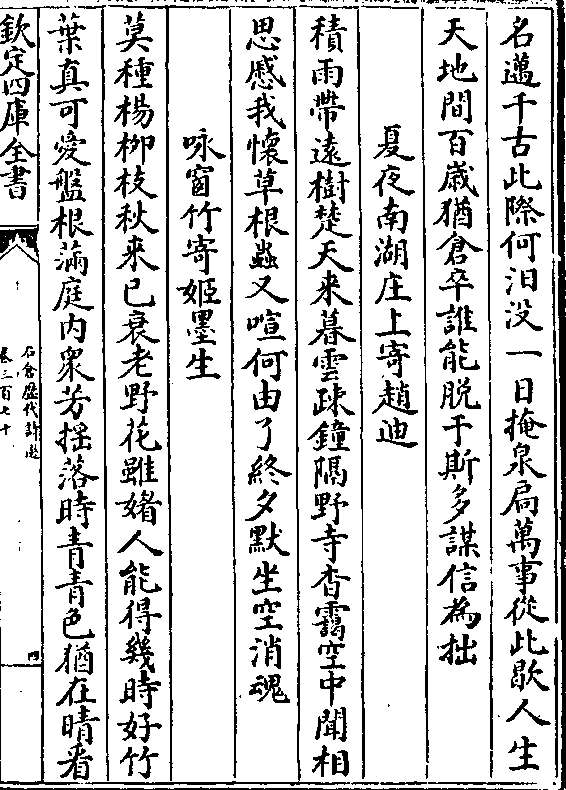 名邁千古此際何汨没一日掩泉扄萬事從此歇人生
天地間百歳猶倉卒誰能脱于斯多謀信為拙
夏夜南湖庄上寄趙迪
積雨帶遠樹楚天来暮雲疎鐘隔野寺杳靄空中聞相
思慼我懷草根蟲又喧何由了終夕默坐空消魂
咏窗竹寄姬墨生
莫種楊栁枝秋来已衰老野花雖媎人能得幾時好竹
葉真可愛盤根滿庭内衆芳揺落時青青色猶在晴看
欽定四庫全書
石倉歴代詩選
卷三百七十
四